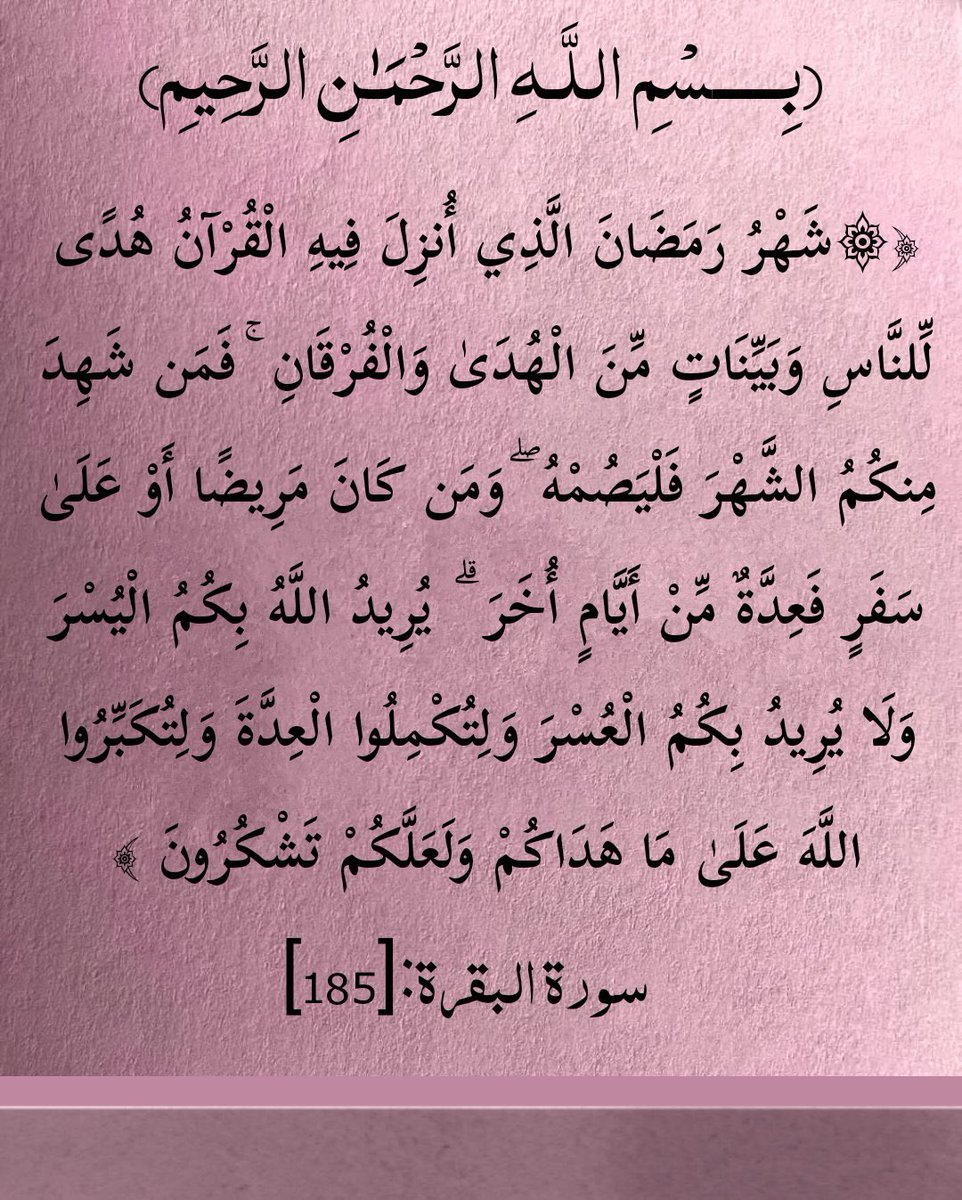 (بِـــسْمِ اللَّـهِ الرَّحْمَـٰنِ الرَّحِيمِ)
﴿۞شَهْرُ رَمَضَانَ الَّذِي أُنزِلَ فِيهِ الْقُرْآنُ هُدًى
لِّلنَّاسِ وَبَيِّنَاتٍ مِّنَ الْهُدَىٰ وَالْفُرْقَانِ ۚ فَمَن شَهِدَ
مِنكُمُ الشَّهْرَ فَلْيَصُمْهُ ۖ وَمَن كَانَ مَرِيضًا أَوْ عَلَىٰ
سَفَرٍ فَعِدَّةٌ مِّنْ أَيَّامٍ أُخَرَ ۗ يُرِيدُ اللَّهُ بِكُمُ الْيُسْرَ
وَلَا يُرِيدُ بِكُمُ الْعُسْرَ وَلِتُكْمِلُوا الْعِدَّةَ وَلِتُكَبِّرُوا
اللَّهَ عَلَىٰ مَا هَدَاكُمْ وَلَعَلَّكُمْ تَشْكُرُونَ ﴾
سورة البقرة:[185]